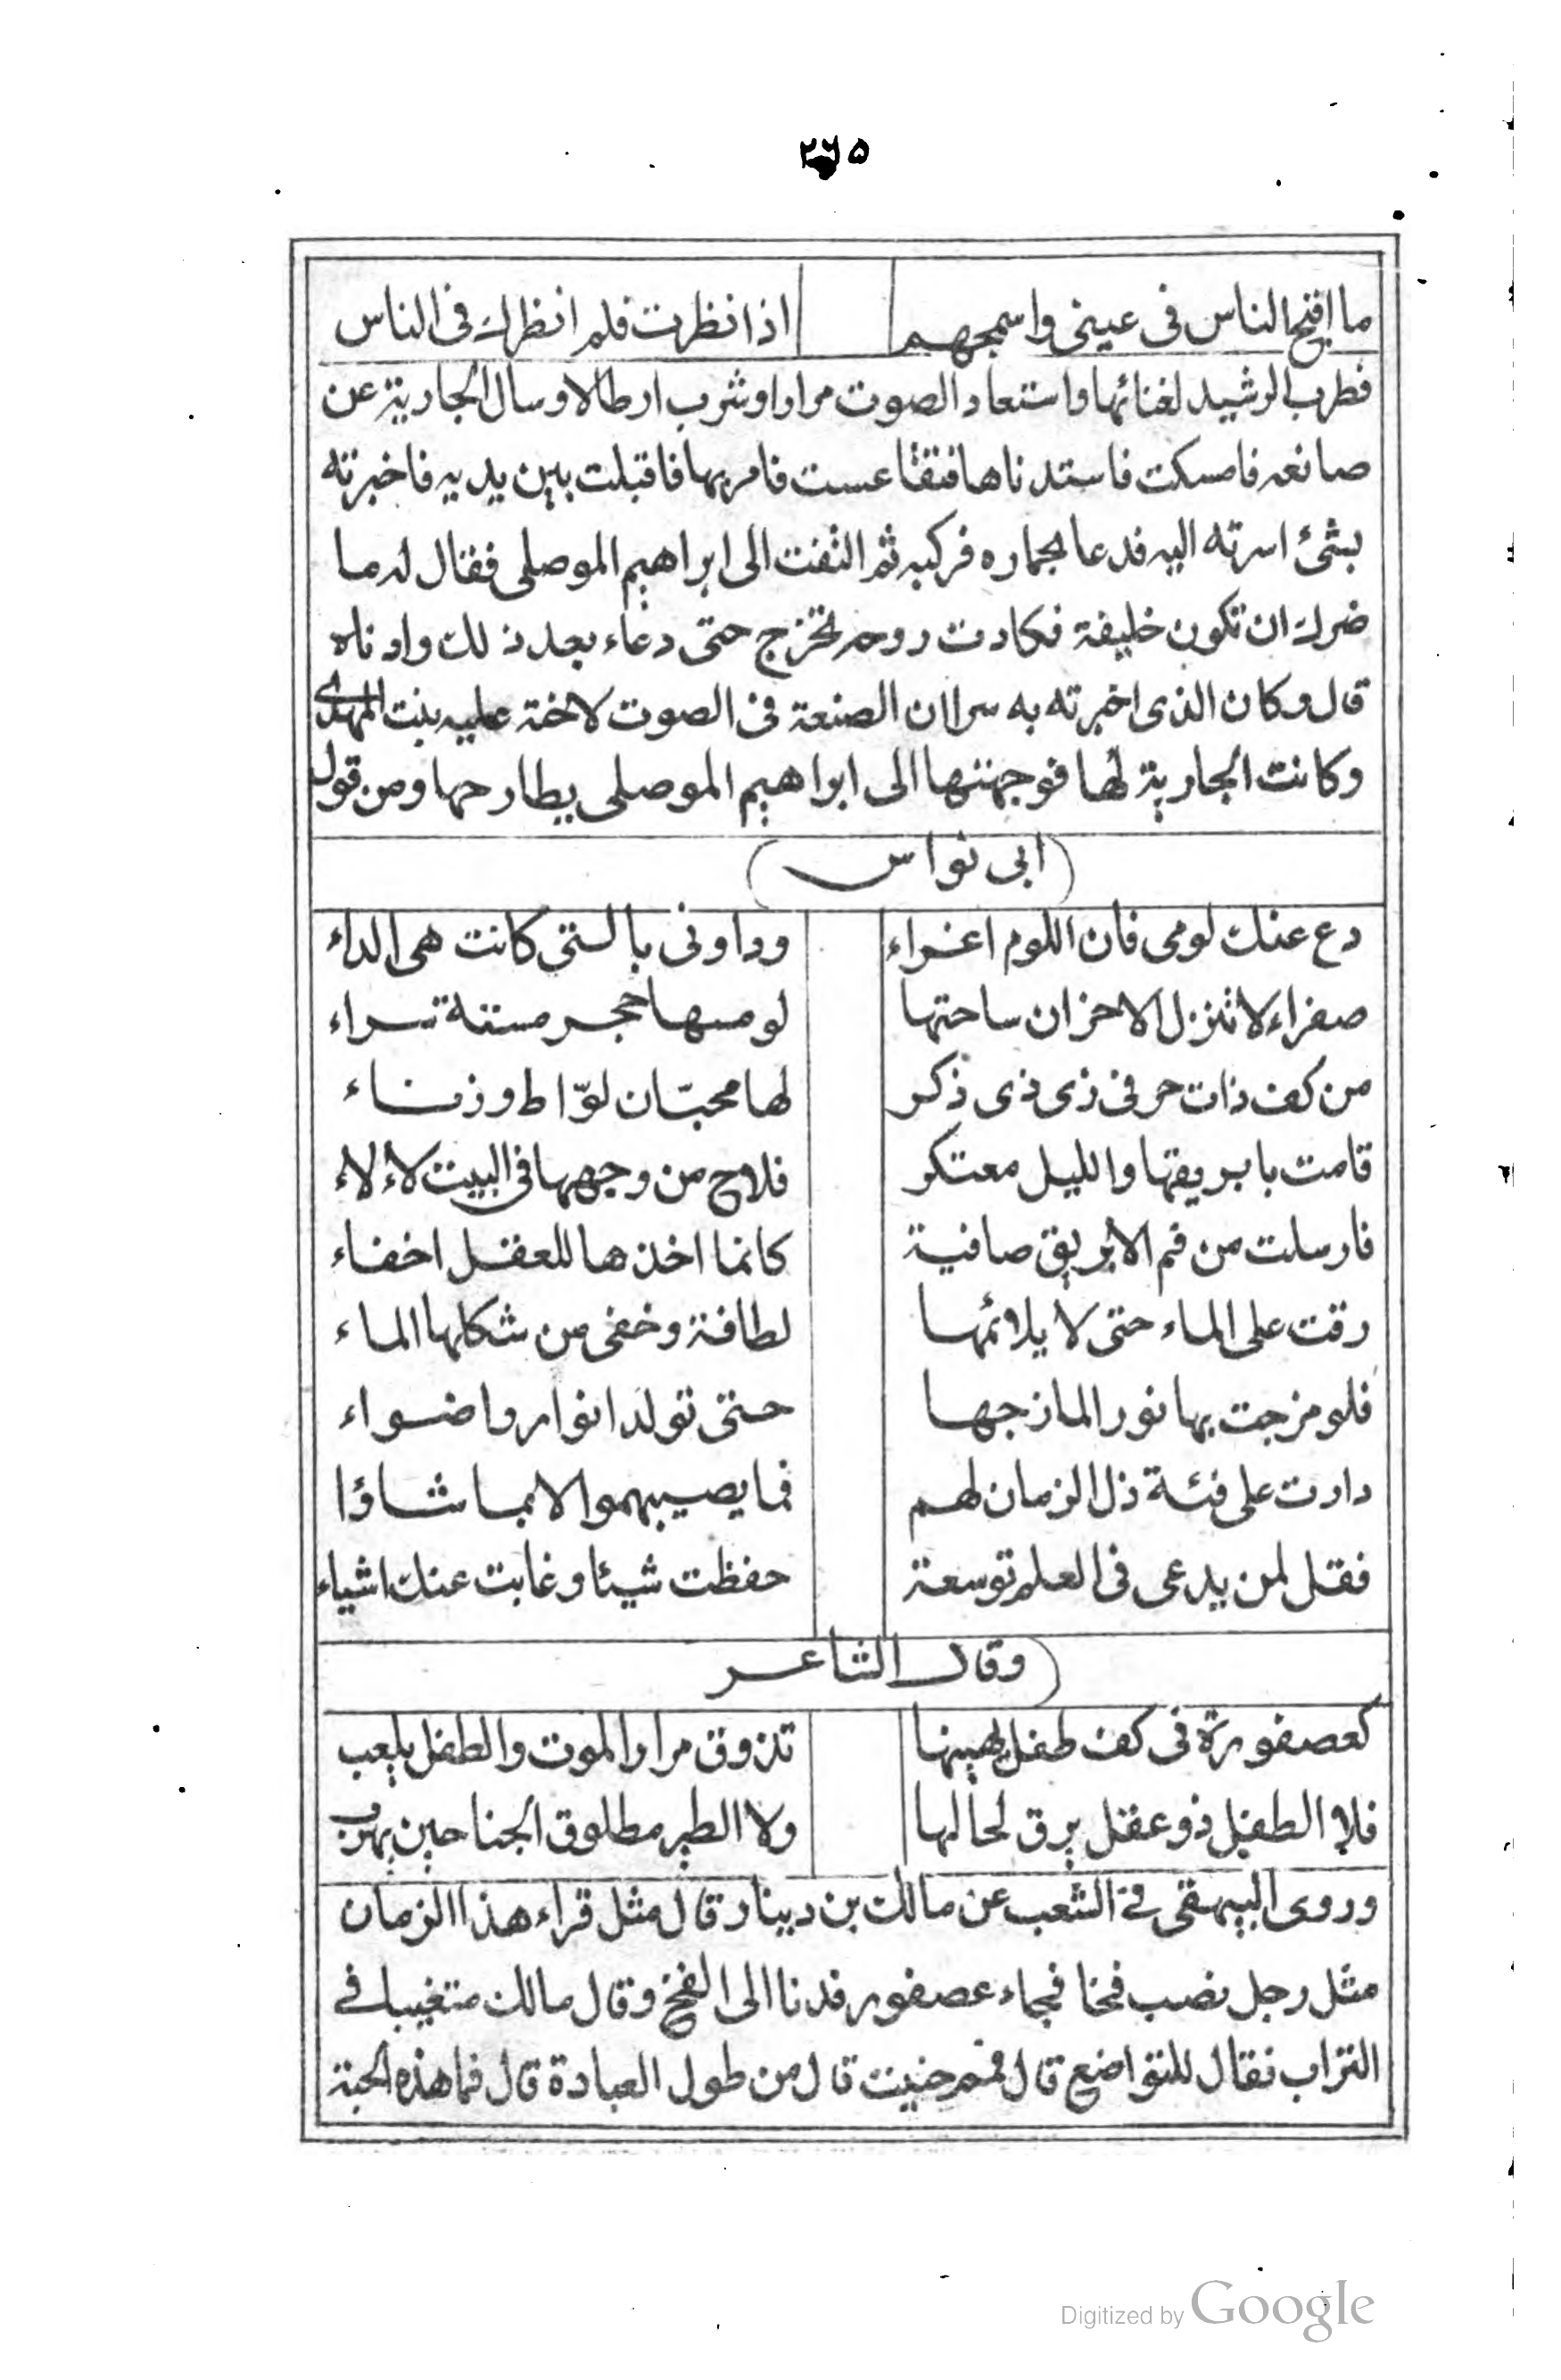 ٢٦٥
ما اقبح الناس فى عينى واسمجهم اذا نظرت فلم انظرك فى الناس
فطرب الرشيد لغنائها واستعاد الصوت مرارا وشرب ارطالا وسال الجارية عن
صانعه فامسكت فاستدناها فتقاعست فامر بها فاقبلت بين يديه فاخبرته
بشئ اسرته اليه فدعا بحماره فركبه ثم التفت الى ابراهيم الموصلى فقال له ما
ضرك ان تكون خليفة فكادت روحه تخرج حتى دعاء بعد ذلك وادناه
قال وكان الذى اخبرته به سرا ان الصنعة فى الصوت لاخته عليه بنت المهدى
وكانت الجارية لها فوجهتها الى ابراهيم الموصلى يطارحها ومن قول
(ابى نواس)
دع عنك لومى فان اللوم اغراء وداونى بالتى كانت هى الداء
صفراء لا تنزل الاحزان ساحتها لو مسها حجر مسته سراء
من كف ذات حر فى زى ذى ذكر لها محبّان لوّاط وزناء
قامت بابريقها والليل معتكر فلاح من وجهها فى البيت لألاء
فارسلت من فم الابريق صافية كانما اخذها للعقل اخفاء
رقت على الماء حتى لا يلائمها لطافة وخفى من شكلها الماء
فلو مزجت بها نور المازجها حتى تولد انوار واضواء
دارت على فئة ذل الزمان لهم فما يصيبهموا الا بما شاؤا
فقل لمن يدعى فى العلم توسعة حفظت شيئا وغابت عنك اشياء
(وقال الشاعر
كعصفورة فى كف طفل يهينها تذوق مرار الموت والطفل يلعب
فلا الطفل ذو عقل يرق لحالها ولا الطير مطلوق الجناحين يهرب
وروى البيهقى فى الشعب عن مالك بن دينار قال مثل قراء هذا الزمان
مثل رجل نصب فخا فجاء عصفور فدنا الى الفخ وقال مالك متغيبا فى
التراب فقال للتواضع قال فمم حنيت قال من طول العبادة قال فما هذه الحبة
Digitized by Google